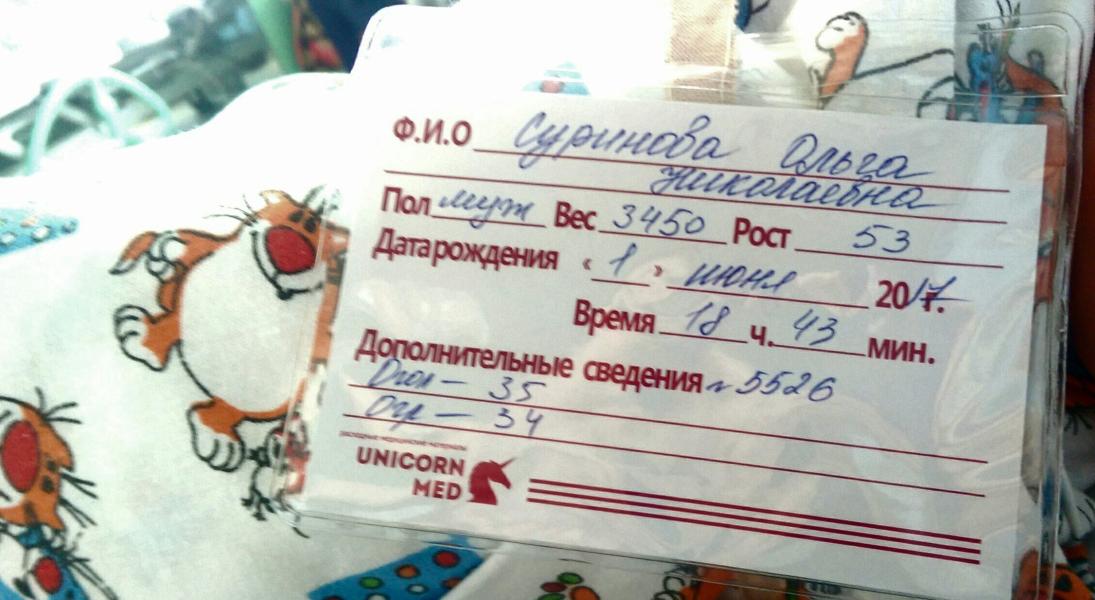 Ф.И.О Суринова Ольга
Николаевна
Пол муж Вес 3450 Рост 53
Дата рождения « 1 » июня 2017г.
Время 18 ч. 43 мин.
Дополнительные сведения № 5526
Dгол — 35
Dгр — 34
РАСХОДНЫЕ МЕДИЦИНСКИЕ МАТЕРИАЛЫ
UNICORN
MED